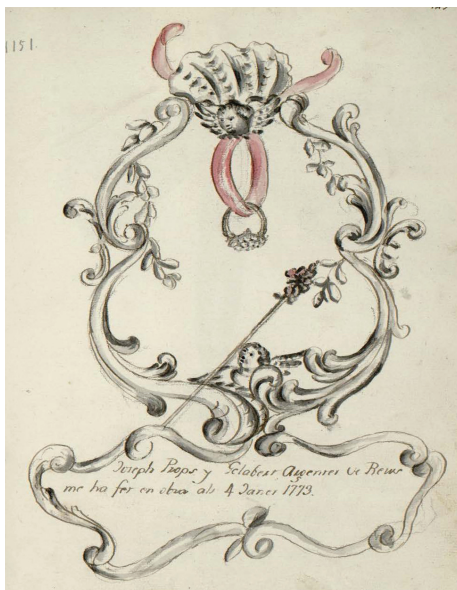 1151.
Joseph y Gelabert Argenter de Reus
me ha fet en obra als 4 Janer 1773.